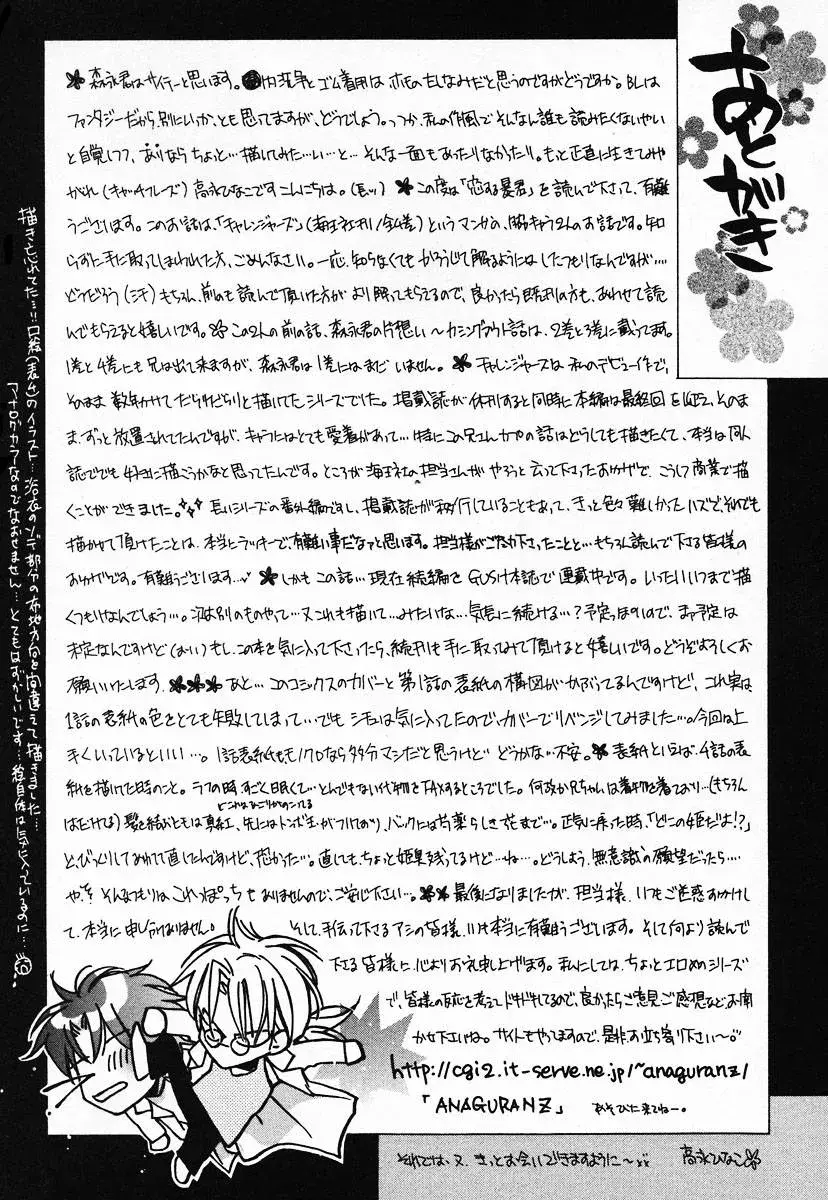 あとがき
✽森永君はサイテーと思います。●内洗浄とゴム着用はホモのたしなみだと思うのですがどうですか。BLは
ファンタジーだから別にいっか、とも思ってますが、どうでしょう。つーか、私の作風でそんなん誰も読みたくないやい
と自覚しつつ、ありならちょっと…描いてみた…い…と…そんな一面もあったりなかったり。もっと正直に生きてみや
がれ(キャッチフレーズ)高永ひなこですこんにちは。(長ッ)✽この度は「恋する暴君」を読んで下さって、有難
うございます。このお話は、「チャレンジャーズ」(海王社刊/全4巻)というマンガの、脇キャラ2人のお話です。知
らずに手に取ってしまわれた方、ごめんなさい。一応、知らなくてもかろうじて解るようにはしたつもりなんですが…
どうだろう(汗)もちろん、前のも読んで頂いた方がより解ってもらえるので、良かったら既刊の方も、あわせて読
んでもらえると嬉しいです。✽この2人の前の話、森永君の片想い〜カミングアウト話は、2巻と3巻に載ってます。
1巻と4巻にも兄は出て来ますが、森永君は1巻にはまだいません。✽チャレンジャーズは私のデビュー作で、
そのまま数年かけてだらりだらりと描いてたシリーズでした。掲載誌が休刊すると同時に本編は最終回を迎え、そのま
ま、ずっと放置されてたんですが、キャラにはとても愛着があって…特にこの兄さんカプの話はどうしても描きたくて、本当は同人
誌ででも好きに描こうかなと思ってたんです。ところが海王社の担当さんがやろうと云って下さったおかげで、こうして商業で描
くことができました。長いシリーズの番外編ですし、掲載誌が移行していることもあって、きっと色々難しかったハズで、それでも
描かせて頂けたことは、本当にラッキーで、有難い事だなァと思います。担当様がご尽力下さったことと…もちろん読んで下さる皆様の
おかげです。有難うございます…✽しかもこの話…現在続編をGUSH本誌で連載中です。いったいいつまで描
くつもりなんでしょう…。次は別のものやって…又これも描いて…みたいな…気長に続ける…?予定っぽいので、まァ予定は
未定なんですけど(おい)もし、この本を気に入って下さったら、続刊も手に取ってみて頂けると嬉しいです。どうぞよろしくお
願いいたします。✽✽✽あと…このコミックスのカバーと第1話の表紙の構図がかぶってるんですけど、これ実は
1話の表紙の色をとても失敗してしまって…でもシチュは気に入ってたので、カバーでリベンジしてみました…。今回は上
手くいっているといい…。1話表紙ももモノクロなら多分マシだと思うけどどうかな…不安。✽表紙といえば、4話の表
紙を描いてた時のこと。ラフの時、すごく眠くて…とんでもない代物をFAXするところでした。何故か兄ちゃんは着物を着ており…(もちろん
はだけてる)髪を結ぶひもは真紅、先にはトンボ玉がついており、バックには芍薬らしき花まで…。正気に戻った時、「どこの姫だよ!?」
と、びっくりしてあわてて直したんですけど、恐かった…。直しても、ちょっと姫臭残ってるけど…ね…。どうしよう、無意識の願望だったら…
やっ、そんなつもりは、これっぽっちもありませんので、ご安心下さい…。✽✽最後になりましたが、担当様、いつもご迷惑おかけし
て、本当に申し訳ありません。そして、手伝って下さるアシの皆様、いつも本当に有難うございます。そして何より読んで
下さる皆様に、心よりお礼申し上げます。私にしては、ちょっとエロめのシリーズ
で、皆様の反応を考えてドキドキしてるので、良かったらご意見ご感想など、お聞
かせ下さいね。サイトもやってますので、是非、お立ち寄り下さい〜。
http://cgi2.it-serve.ne.jp/~anaguranz/
「ANAGURANZ」 あそびに来てねー。
それでは、又、きっとお会いできますように〜 高永ひなこ
描き忘れてた…!!口絵(表紙)のイラスト…浴衣のソデ部分の布地方向を間違えて描きました…
アナログカラーなのでなおせません…とてもはずかしいです…絵自体は気に入っているのに…